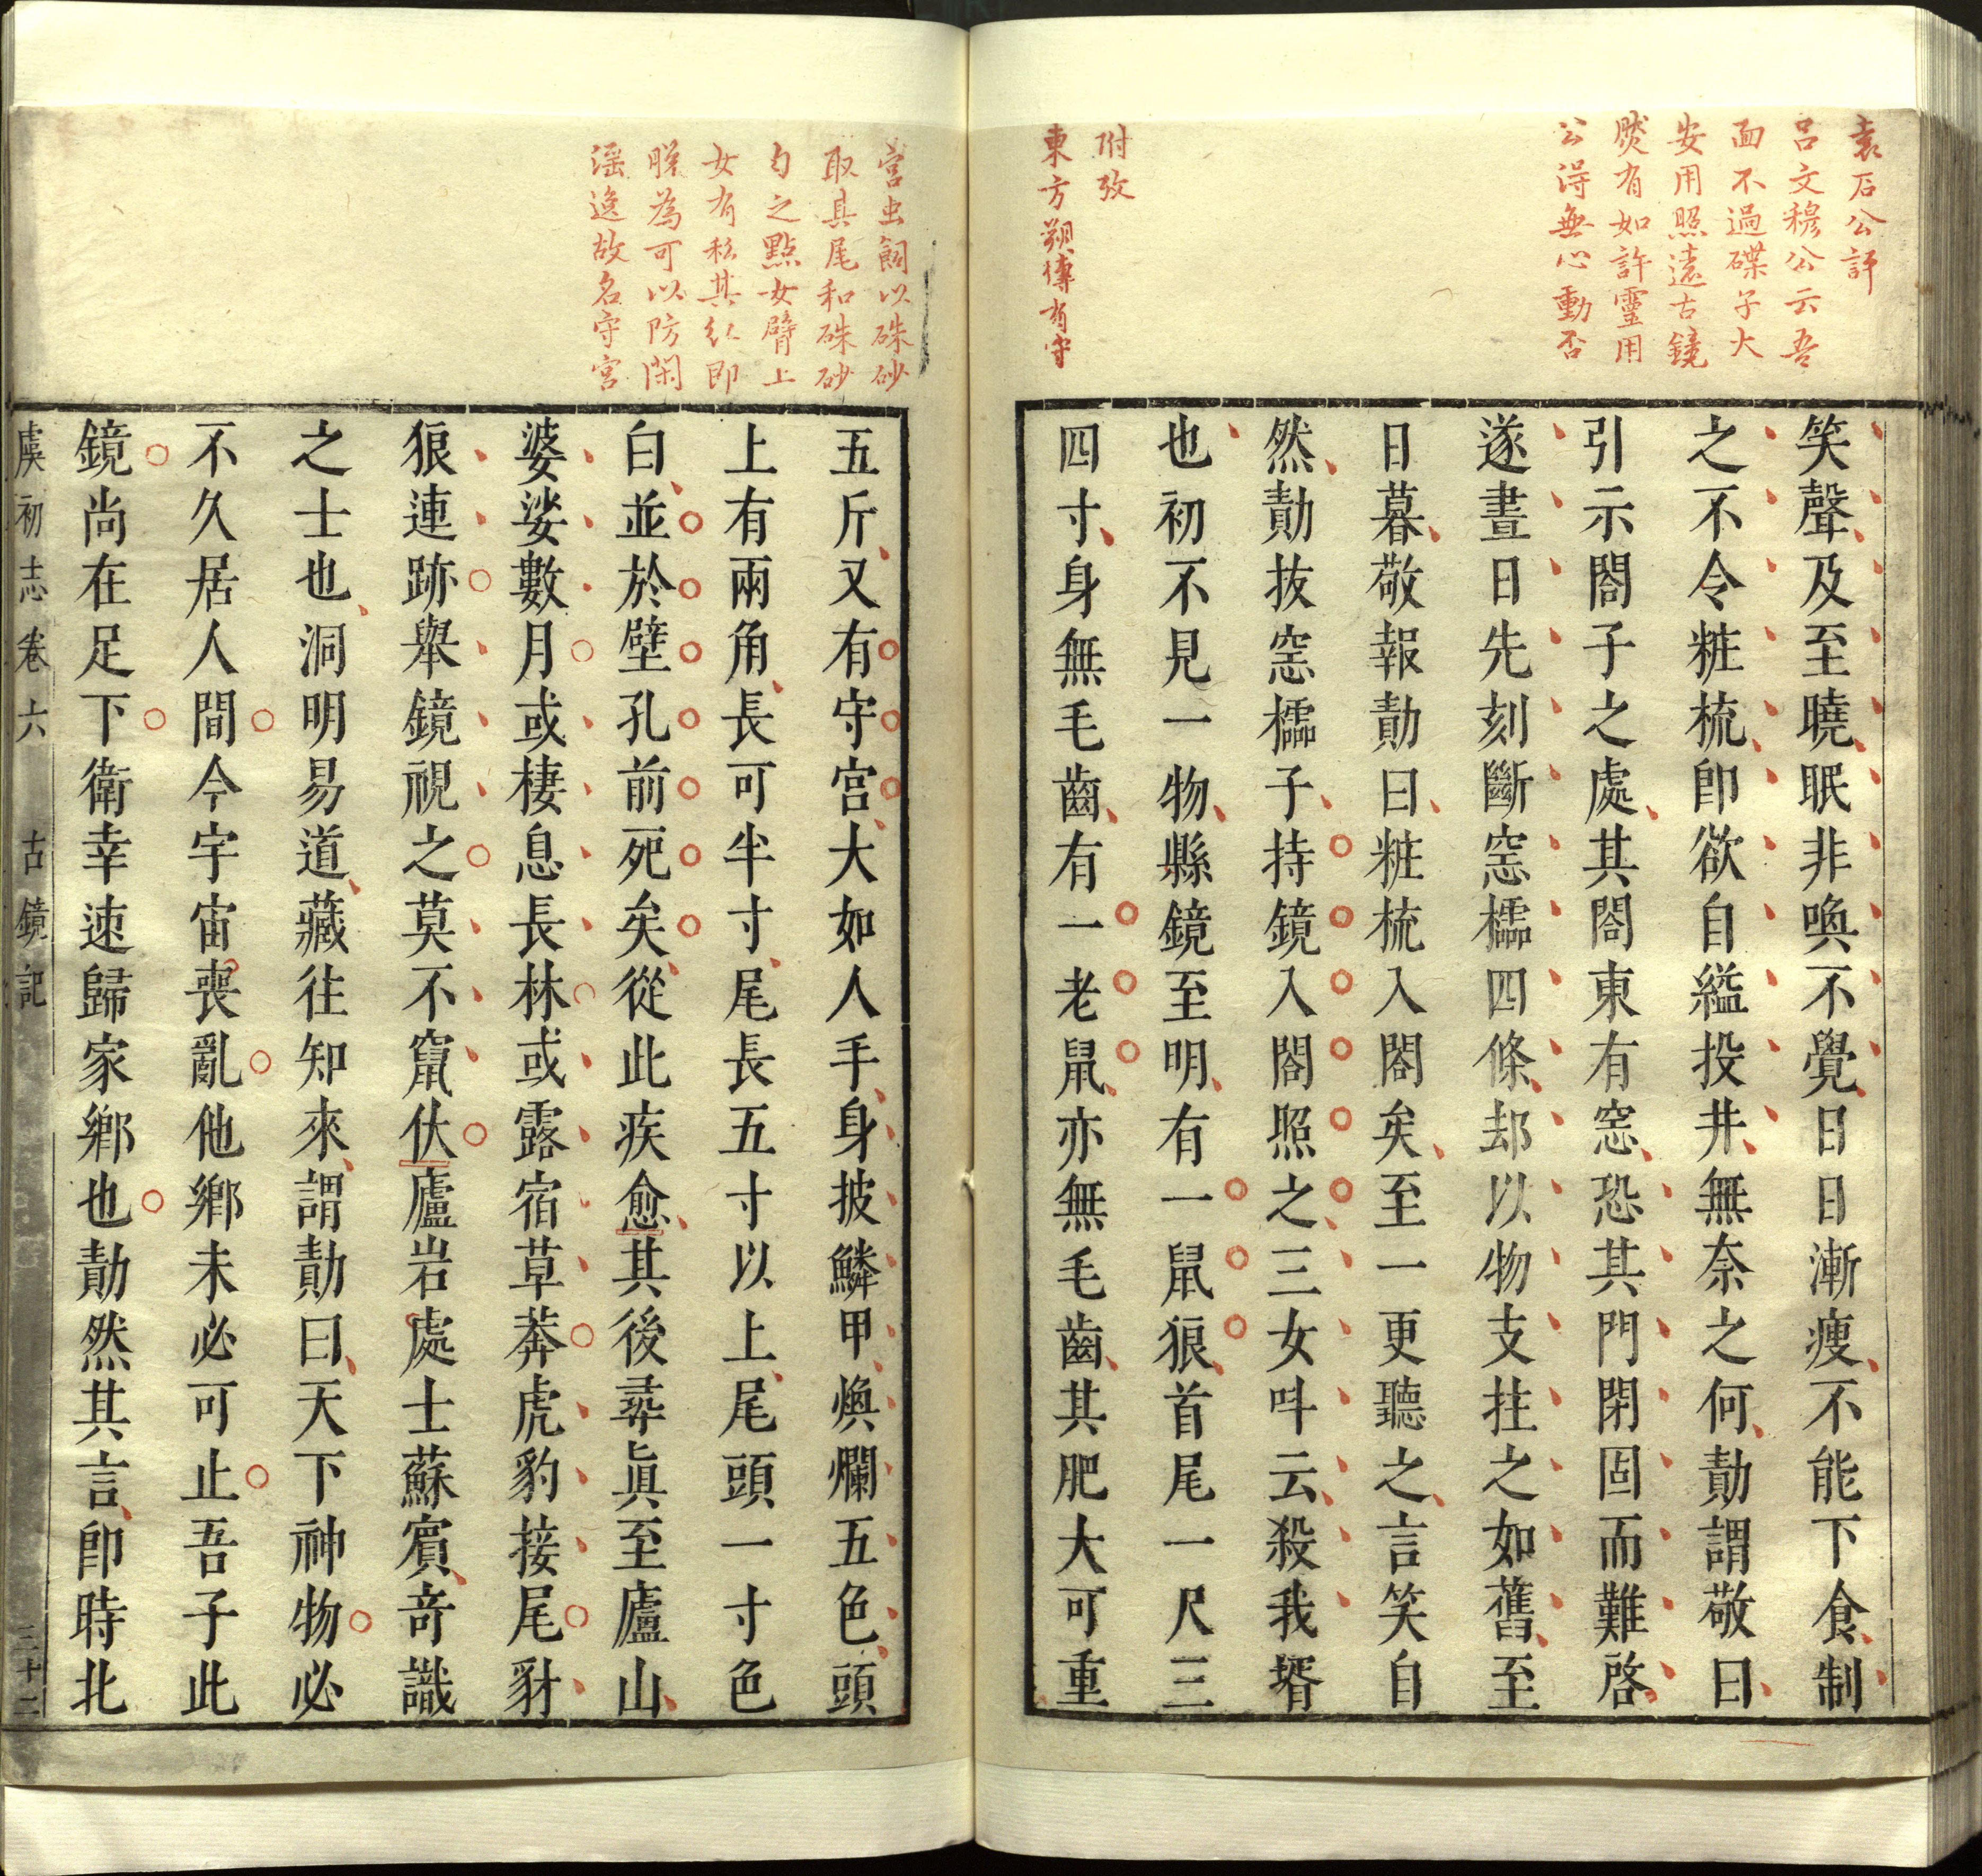 袁石公評
呂文穆公云吾
面不過碟子大
安用照遠古鏡
燄有如許靈用
公得無心動否
附攷
東方朔傳有守
笑聲及至曉眠非喚不覺日日漸瘦不能下食制
之不令粧梳即欲自縊投井無奈之何勣謂敬曰
引示閤子之處其閤東有窓恐其門閉固而難啓
遂晝日先刻斷窓櫺四條却以物支拄之如舊至
日暮敬報勣曰粧梳入閤矣至一更聽之言笑自
然勣拔窓櫺子持鏡入閤照之三女叫云殺我壻
也初不見一物縣鏡至明有一鼠狼首尾一尺三
四寸身無毛齒有一老鼠亦無毛齒其肥大可重
宮虫飼以硃砂
取其尾和硃砂
勻之點女臂上
女有私其紅即
脫為可以防閑
淫逸故名守宮
五斤又有守宮大如人手身披鱗甲煥爛五色頭
上有兩角長可半寸尾長五寸以上尾頭一寸色
白並於壁孔前死矣從此疾愈其後尋真至廬山
婆娑數月或棲息長林或露宿草莽虎豹接尾豺
狼連跡舉鏡視之莫不竄伏廬岩處士蘇賓奇識
之士也洞明易道藏往知來謂勣曰天下神物必
不久居人間今宇宙喪亂他鄉未必可止吾子此
鏡尚在足下衛幸速歸家鄉也勣然其言即時北
虞初志卷六 古鏡記 三十二